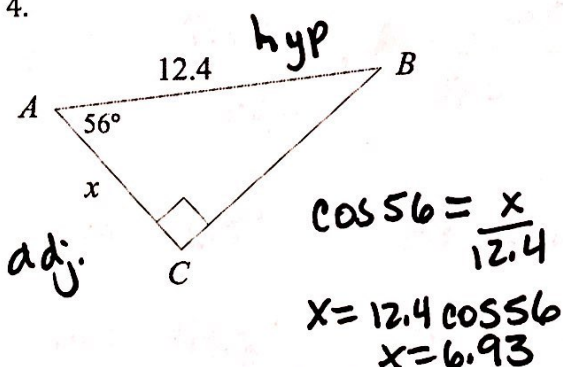 4.
hyp
12.4
A
B
56°
x
adj.
C
cos 56 = x/12.4
x = 12.4 cos 56
x = 6.93